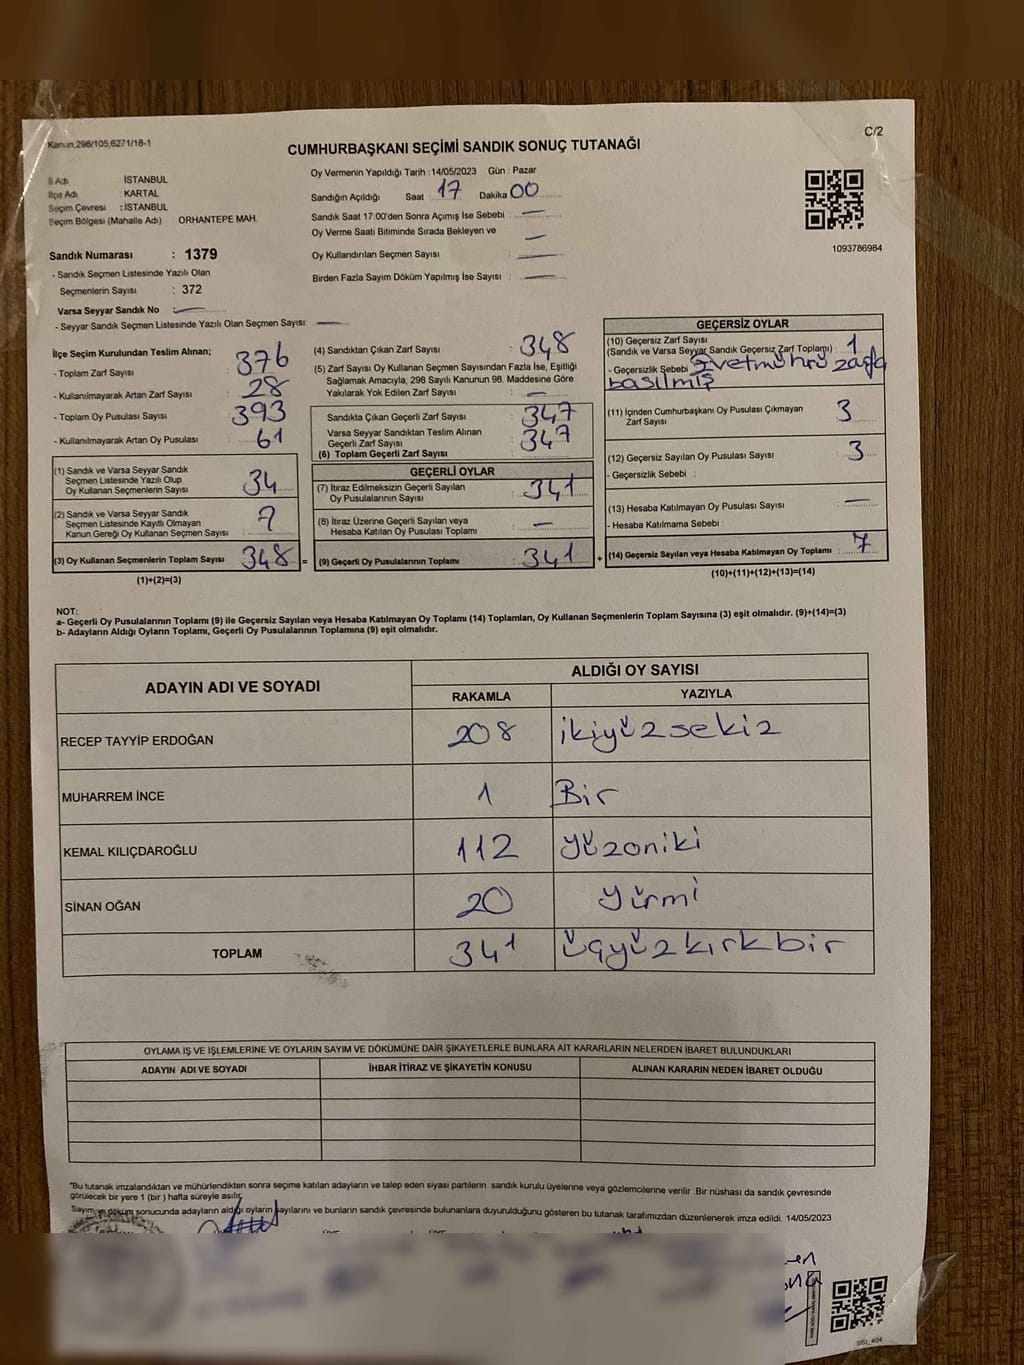 Kanun,298/105;6271/18-1
C/2
CUMHURBAŞKANI SEÇİMİ SANDIK SONUÇ TUTANAĞI
İl Adı : İSTANBUL
İlçe Adı : KARTAL
Seçim Çevresi : İSTANBUL
Seçim Bölgesi (Mahalle Adı) ORHANTEPE MAH.
Sandık Numarası : 1379
- Sandık Seçmen Listesinde Yazılı Olan
Seçmenlerin Sayısı : 372
Varsa Seyyar Sandık No —
- Seyyar Sandık Seçmen Listesinde Yazılı Olan Seçmen Sayısı: —
Oy Vermenin Yapıldığı Tarih :14/05/2023 Gün : Pazar
Sandığın Açıldığı Saat : 17 Dakika 00
Sandık Saat 17:00'den Sonra Açımış İse Sebebi : —
Oy Verme Saati Bitiminde Sırada Bekleyen ve —
Oy Kullandırılan Seçmen Sayısı : —
Birden Fazla Sayım Döküm Yapılmış İse Sayısı : —
1093786984
İlçe Seçim Kurulundan Teslim Alınan;
- Toplam Zarf Sayısı : 376
- Kullanılmayarak Artan Zarf Sayısı : 28
- Toplam Oy Pusulası Sayısı : 393
- Kullanılmayarak Artan Oy Pusulası : 61
(1) Sandık ve Varsa Seyyar Sandık
Seçmen Listesinde Yazılı Olup
Oy Kullanan Seçmenlerin Sayısı : 34
(2) Sandık ve Varsa Seyyar Sandık
Seçmen Listesinde Kayıtlı Olmayan
Kanun Gereği Oy Kullanan Seçmen Sayısı :
(3) Oy Kullanan Seçmenlerin Toplam Sayısı : 348 =
(1)+(2)=(3)
(4) Sandıktan Çıkan Zarf Sayısı : 348
(5) Zarf Sayısı Oy Kullanan Seçmen Sayısından Fazla İse, Eşitliği
Sağlamak Amacıyla, 298 Sayılı Kanunun 98. Maddesine Göre
Yakılarak Yok Edilen Zarf Sayısı : —
Sandıkta Çıkan Geçerli Zarf Sayısı : 347
Varsa Seyyar Sandıktan Teslim Alınan
Geçerli Zarf Sayısı
(6) Toplam Geçerli Zarf Sayısı : 347
GEÇERLİ OYLAR
(7) İtiraz Edilmeksizin Geçerli Sayılan
Oy Pusulalarının Sayısı : 341
(8) İtiraz Üzerine Geçerli Sayılan veya
Hesaba Katılan Oy Pusulası Toplamı : —
(9) Geçerli Oy Pusulalarının Toplamı : 341 +
GEÇERSİZ OYLAR
(10) Geçersiz Zarf Sayısı
(Sandık ve Varsa Seyyar Sandık Geçersiz Zarf Toplamı) : 1
- Geçersizlik Sebebi : Evet mührü zarfa
basılmış
(11) İçinden Cumhurbaşkanı Oy Pusulası Çıkmayan
Zarf Sayısı : 3
(12) Geçersiz Sayılan Oy Pusulası Sayısı : 3
- Geçersizlik Sebebi :
(13) Hesaba Katılmayan Oy Pusulası Sayısı : —
- Hesaba Katılmama Sebebi :
(14) Geçersiz Sayılan veya Hesaba Katılmayan Oy Toplamı : 7
(10)+(11)+(12)+(13)=(14)
NOT:
a- Geçerli Oy Pusulalarının Toplamı (9) ile Geçersiz Sayılan veya Hesaba Katılmayan Oy Toplamı (14) Toplamları, Oy Kullanan Seçmenlerin Toplam Sayısına (3) eşit olmalıdır. (9)+(14)=(3)
b- Adayların Aldığı Oyların Toplamı, Geçerli Oy Pusulalarının Toplamına (9) eşit olmalıdır.
ADAYIN ADI VE SOYADI
ALDIĞI OY SAYISI
RAKAMLA YAZIYLA
RECEP TAYYİP ERDOĞAN 208 ikiyüzsekiz
MUHARREM İNCE 1 Bir
KEMAL KILIÇDAROĞLU 112 yüzoniki
SİNAN OĞAN 20 yirmi
TOPLAM 341 üçyüzkırkbir
OYLAMA İŞ VE İŞLEMLERİNE VE OYLARIN SAYIM VE DÖKÜMÜNE DAİR ŞİKAYETLERLE BUNLARA AİT KARARLARIN NELERDEN İBARET BULUNDUKLARI
ADAYIN ADI VE SOYADI İHBAR İTİRAZ VE ŞİKAYETİN KONUSU ALINAN KARARIN NEDEN İBARET OLDUĞU
"Bu tutanak imzalandıktan ve mühürlendikten sonra seçime katılan adayların ve talep eden siyasi partilerin sandık kurulu üyelerine veya gözlemcilerine verilir .Bir nüshası da sandık çevresinde
görülecek bir yere 1 (bir ) hafta süreyle asılır.
Sayım ve döküm sonucunda adayların aldığı oyların sayılarını ve bunların sandık çevresinde bulunanlara duyurulduğunu gösteren bu tutanak tarafımızdan düzenlenerek imza edildi. 14/05/2023